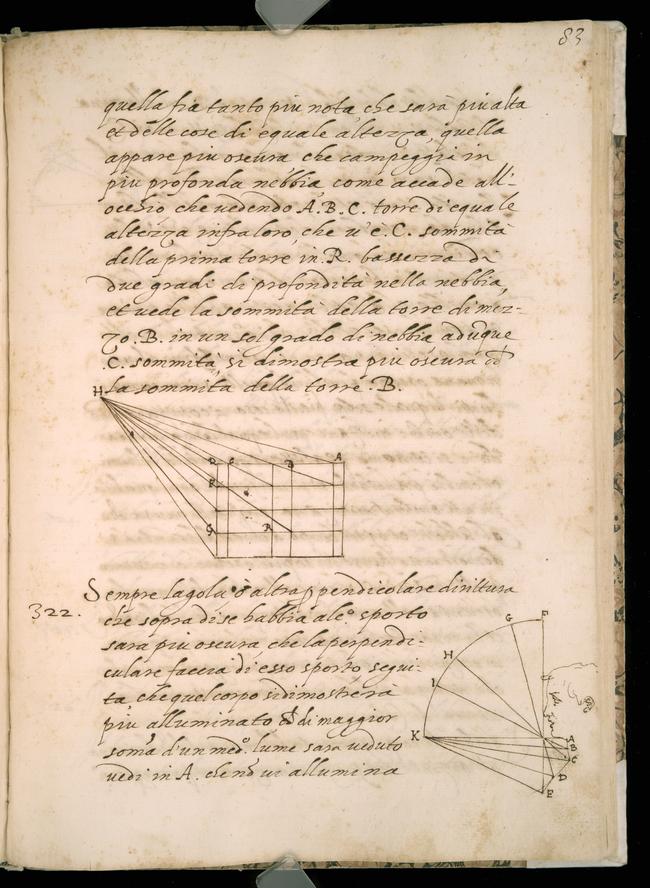 83
quella fia tanto piu nota, che sarà piu alta
et delle cose di equale altezza, quella
appare piu oscura che campeggia in
piu profonda nebbia, come accade all'-
occhio che uedendo A.B.C. torre di equale
altezza infra loro, che u'e C. sommità
della prima torre in.R. bassezza di
due gradi di profondità nella nebbia,
et uede la sommità della torre di mez-
zo.B. in un sol grado di nebbia aduque
.C. sommità si dimostra piu oscura
H la sommità della torre.B.
R C B A
R
G R
Sempre la gola o altra ppendicolare dirittura
322.
che sopra di se habbia alco sporto
sarà piu oscura che la perpendi-
culare faccia di esso sporto, segui-
ta, che quel corpo si dimostrerà
piu alluminato di maggior
soma d'un medo. lume sarà ueduto
uedi in A. che nō ui allumina
G F
H
I
K
C
D
E